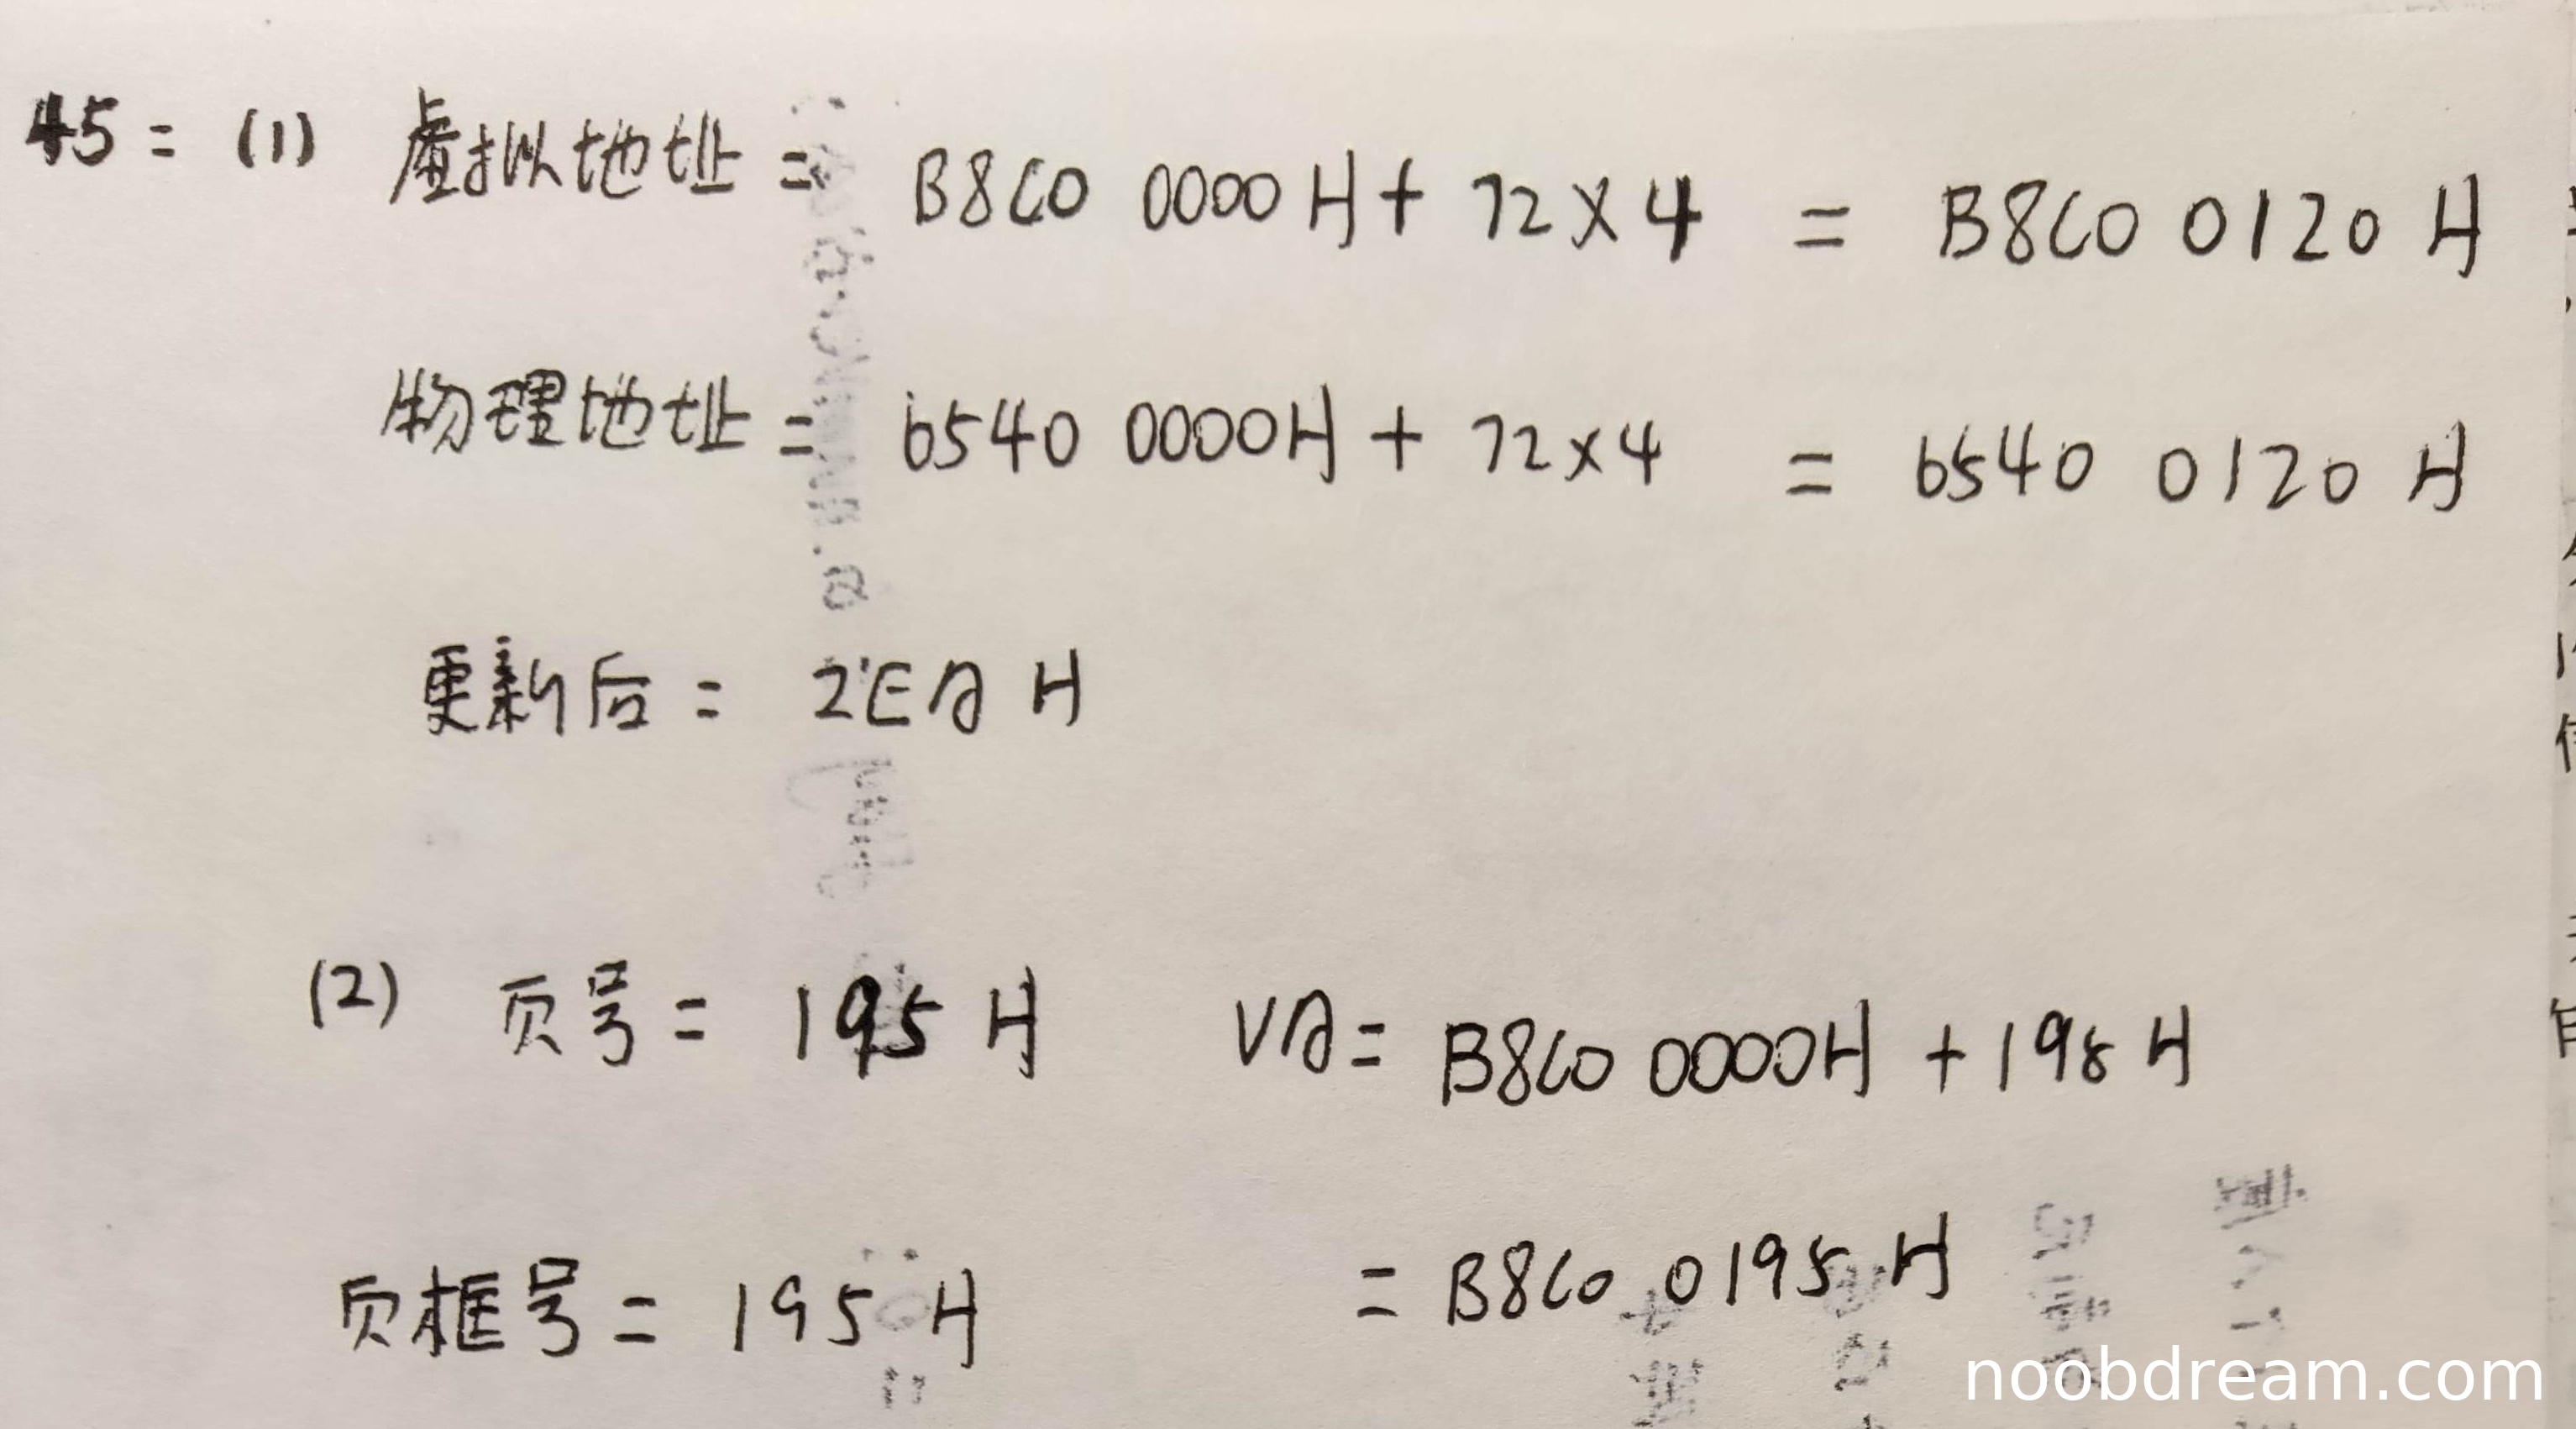 45: (1) 虚拟地址 = B8C0 0000 H + 72 × 4 = B8C0 0120 H
物理地址 = 6540 0000H + 72×4 = 6540 0120 H
更新后 = 2EA H
(2) 页号 = 195 H VA = B8C0 0000H + 195 H
页框号 = 195 H = B8C0 0195 H
noobdream.com